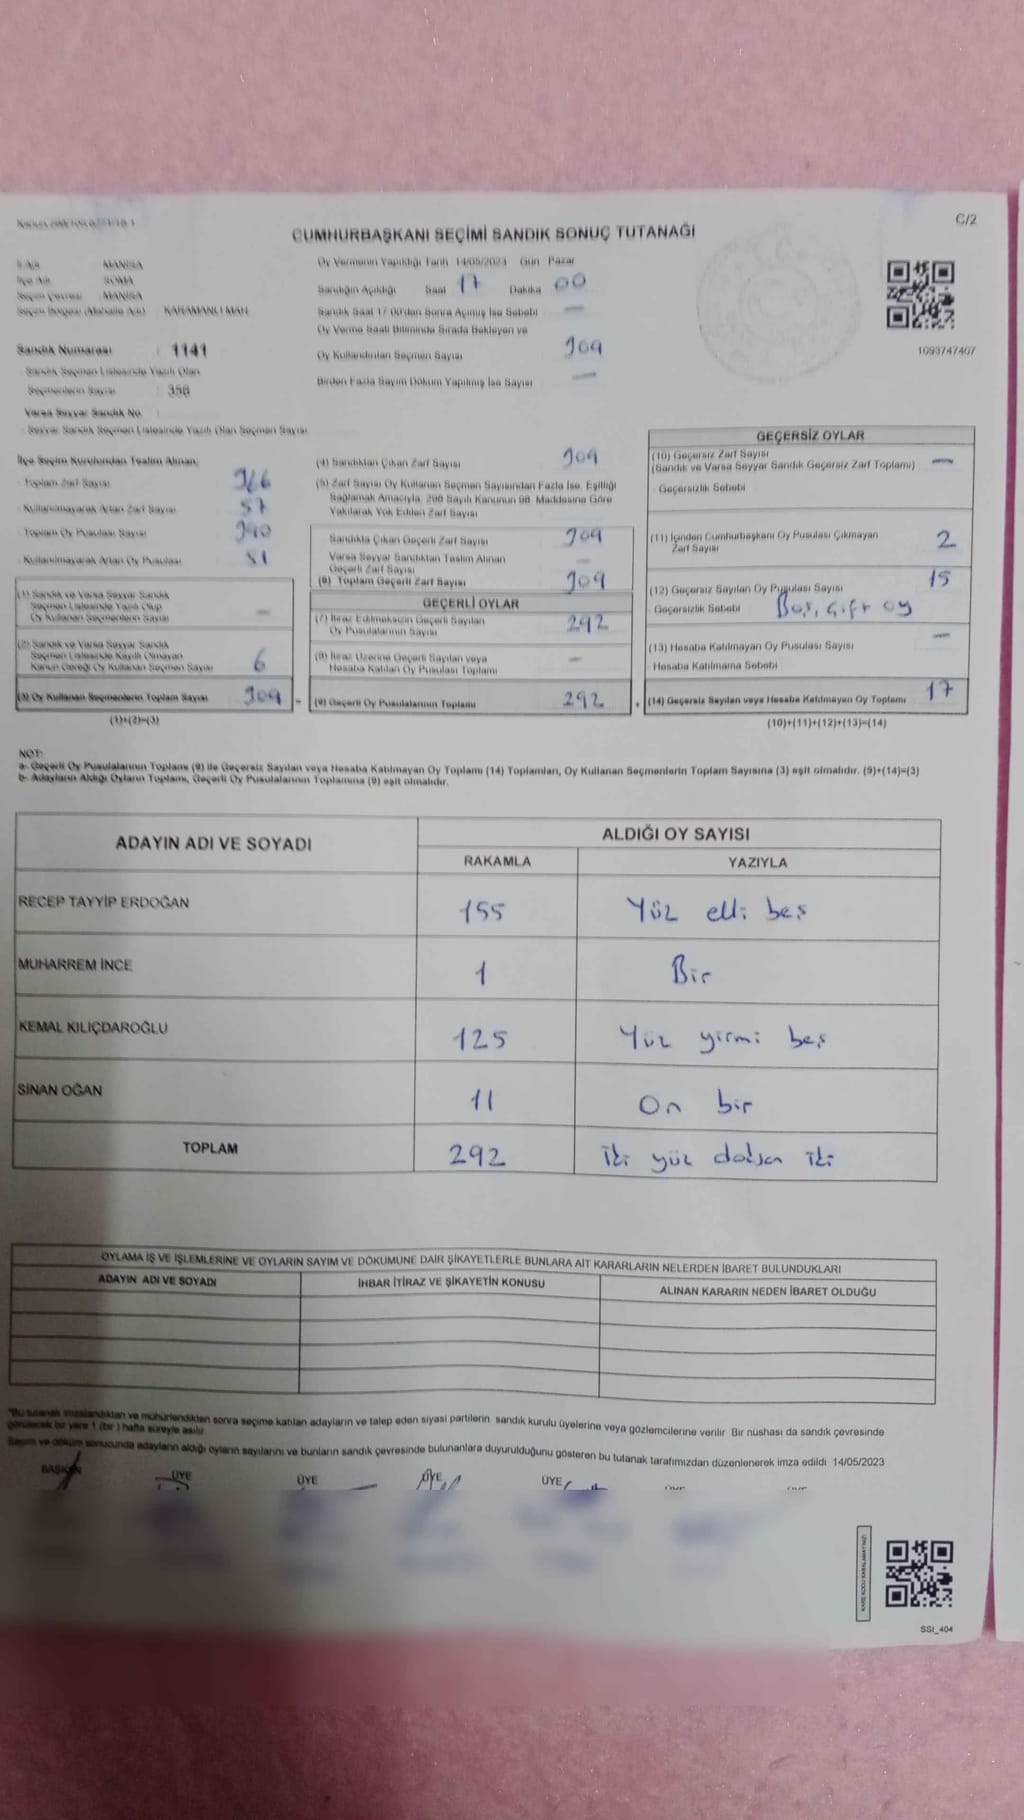 C/2
CUMHURBAŞKANI SEÇİMİ SANDIK SONUÇ TUTANAĞI
İl Adı MANİSA
İlçe Adı SOMA
Seçim Çevresi MANİSA
Seçim Bölgesi (Mahalle Adı) KARAMANLI MAH.
Sandık Numarası : 1141
Sandık Seçmen Listesinde Yazılı Olan
Seçmenlerin Sayısı : 358
Varsa Seyyar Sandık No :
Seyyar Sandık Seçmen Listesinde Yazılı Olan Seçmen Sayısı
Oy Vermenin Yapıldığı Tarih 14/05/2023 Gün Pazar
Sandığın Açıldığı Saat 17 Dakika 00
Sandık Saat 17.00'den Sonra Açılmış İse Sebebi —
Oy Verme Saati Bitiminde Sırada Bekleyen ve
Oy Kullandırılan Seçmen Sayısı 309
Birden Fazla Sayım Döküm Yapılmış İse Sayısı —
1093747407
İlçe Seçim Kurulundan Teslim Alınan;
Toplam Zarf Sayısı 366
Kullanılmayarak Artan Zarf Sayısı 57
Toplam Oy Pusulası Sayısı
Kullanılmayarak Artan Oy Pusulası
(1) Sandık ve Varsa Seyyar Sandık
Seçmen Listesinde Yazılı Olup
Oy Kullanan Seçmenlerin Sayısı —
(2) Sandık ve Varsa Seyyar Sandık
Seçmen Listesinde Kayıtlı Olmayan
Kanun Gereği Oy Kullanan Seçmen Sayısı 6
(3) Oy Kullanan Seçmenlerin Toplam Sayısı 309
(1)+(2)=(3)
(4) Sandıktan Çıkan Zarf Sayısı 309
(5) Zarf Sayısı Oy Kullanan Seçmen Sayısından Fazla İse, Eşitliği
Sağlamak Amacıyla, 298 Sayılı Kanunun 98. Maddesine Göre
Yakılarak Yok Edilen Zarf Sayısı
Sandıkta Çıkan Geçerli Zarf Sayısı 309
Varsa Seyyar Sandıktan Teslim Alınan
Geçerli Zarf Sayısı —
(6) Toplam Geçerli Zarf Sayısı 309
GEÇERLİ OYLAR
(7) İtiraz Edilmeksizin Geçerli Sayılan
Oy Pusulalarının Sayısı 292
(8) İtiraz Üzerine Geçerli Sayılan veya
Hesaba Katılan Oy Pusulası Toplamı —
(9) Geçerli Oy Pusulalarının Toplamı 292
GEÇERSİZ OYLAR
(10) Geçersiz Zarf Sayısı
(Sandık ve Varsa Seyyar Sandık Geçersiz Zarf Toplamı) —
Geçersizlik Sebebi
(11) İçinden Cumhurbaşkanı Oy Pusulası Çıkmayan
Zarf Sayısı 2
(12) Geçersiz Sayılan Oy Pusulası Sayısı 15
Geçersizlik Sebebi Boş, çift oy
(13) Hesaba Katılmayan Oy Pusulası Sayısı —
Hesaba Katılmama Sebebi
(14) Geçersiz Sayılan veya Hesaba Katılmayan Oy Toplamı 17
(10)+(11)+(12)+(13)=(14)
NOT:
a- Geçerli Oy Pusulalarının Toplamı (9) ile Geçersiz Sayılan veya Hesaba Katılmayan Oy Toplamı (14) Toplamları, Oy Kullanan Seçmenlerin Toplam Sayısına (3) eşit olmalıdır. (9)+(14)=(3)
b- Adayların Aldığı Oyların Toplamı, Geçerli Oy Pusulalarının Toplamına (9) eşit olmalıdır.
ADAYIN ADI VE SOYADI ALDIĞI OY SAYISI
RAKAMLA YAZIYLA
RECEP TAYYİP ERDOĞAN 155 Yüz elli beş
MUHARREM İNCE 1 Bir
KEMAL KILIÇDAROĞLU 125 Yüz yirmi beş
SİNAN OĞAN 11 On bir
TOPLAM 292 İki yüz doksan iki
OYLAMA İŞ VE İŞLEMLERİNE VE OYLARIN SAYIM VE DÖKÜMÜNE DAİR ŞİKAYETLERLE BUNLARA AİT KARARLARIN NELERDEN İBARET BULUNDUKLARI
ADAYIN ADI VE SOYADI İHBAR İTİRAZ VE ŞİKAYETİN KONUSU ALINAN KARARIN NEDEN İBARET OLDUĞU
*Bu tutanak imzalandıktan ve mühürlendikten sonra seçime katılan adayların ve talep eden siyasi partilerin sandık kurulu üyelerine veya gözlemcilerine verilir. Bir nüshası da sandık çevresinde
görülecek bir yere 1 (bir) hafta süreyle asılır.
Sayım ve döküm sonucunda adayların aldığı oyların sayılarını ve bunların sandık çevresinde bulunanlara duyurulduğunu gösteren bu tutanak tarafımızdan düzenlenerek imza edildi. 14/05/2023
BAŞKAN ÜYE ÜYE ÜYE ÜYE
KARE KODU KARALAMAYINIZ!
SSI_404